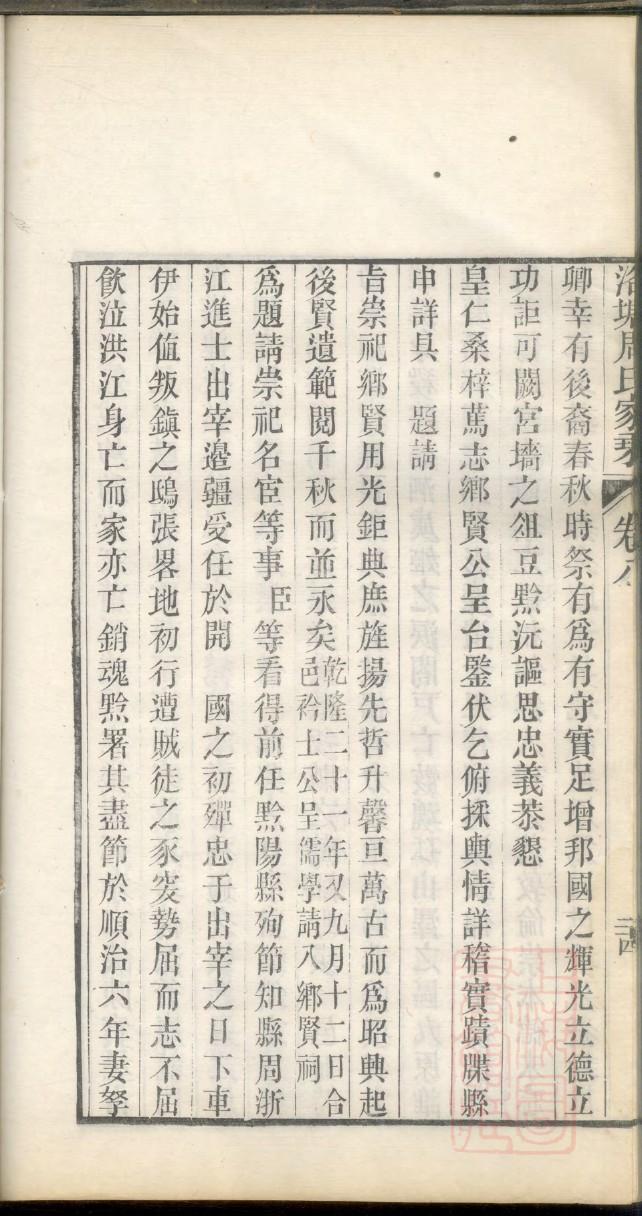 洛塘周氏家乘 卷八 二四
卿幸有後裔春秋時祭有爲有守實足增邦國之輝光立德立
功詎可闕宮墻之俎豆黔沅謳思忠義恭懇
皇仁桑梓蔦志鄉賢公呈台鑒伏乞俯採輿情詳稽實蹟牒縣
申詳具 題請
旨崇祀鄉賢用光鉅典庶旌揚先哲升馨亘萬古而爲昭興起
後賢遺範閱千秋而並永矣
乾隆二十一年又九月十二日合
邑衿士公呈儒學請入鄉賢祠
爲題請崇祀名宦等事 臣等看得前任黔陽縣殉節知縣周浙
江進士出宰邉疆受任於開 國之初殫忠于出宰之日下車
伊始値叛鎭之鴟張畧地初行遭賊徒之豕突勢屈而志不屈
飮泣洪江身亡而家亦亡銷魂黔署其盡節於順治六年妻孥